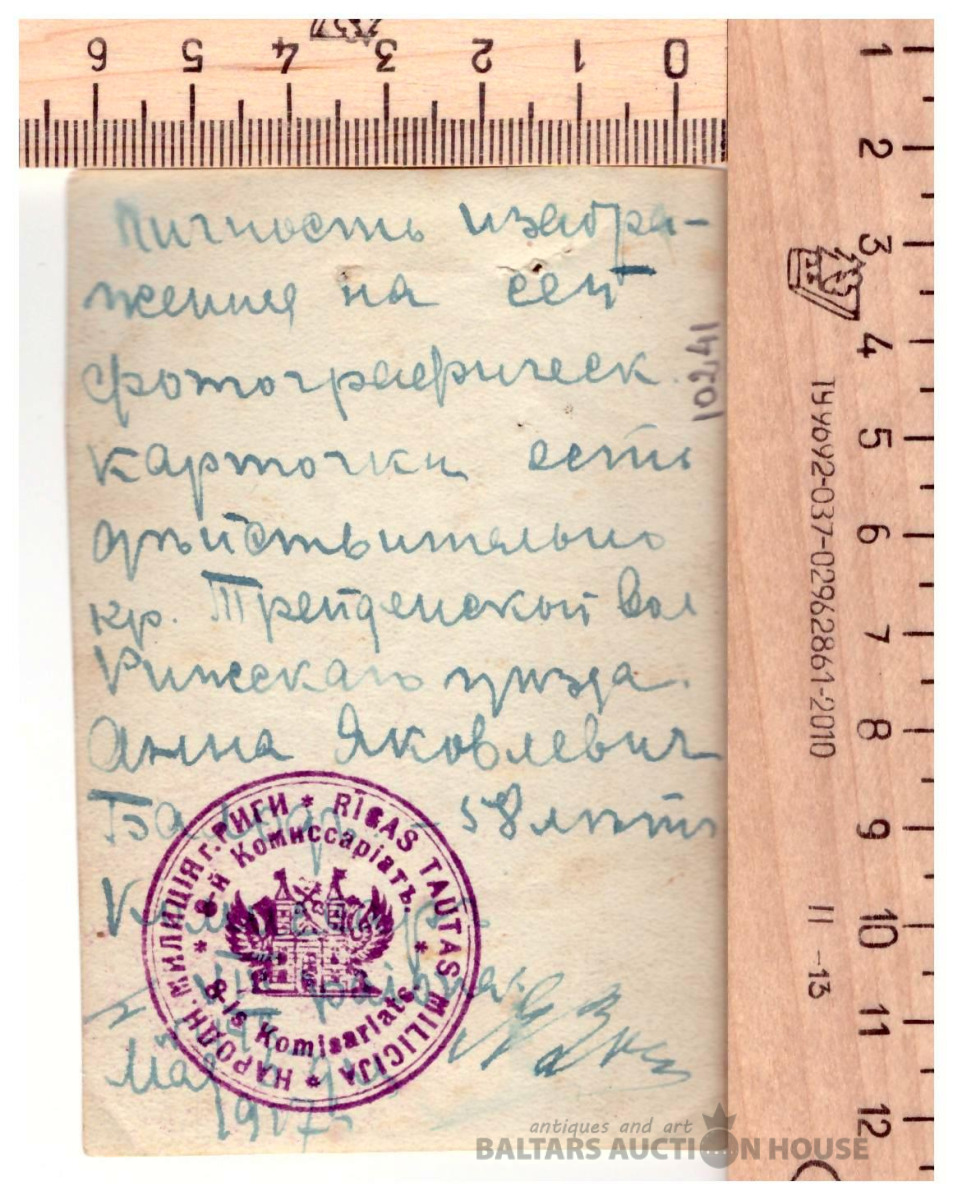 6 5 4 3 2 1 0
1 2 3 4 5 6 7 8 9 10 11 12
144692-037-02962861-2010
11 -13
10241
Личность изобра-
женная на сей
фотографическ.
карточки есть
дѣйствительно
кр. Трейденской вол
Рижскаго уѣзда.
Анна Яковлевич
58 лѣтъ
Комиссаръ
VIII района
Мая
1917
НАРОДН. МИЛИЦІЯ г. РИГИ * RIGAS TAUTAS MILICIJA *
8-й Комиссаріатъ. * 8-is Komisariats. *
antiques and art
BALTARS AUCTION HOUSE